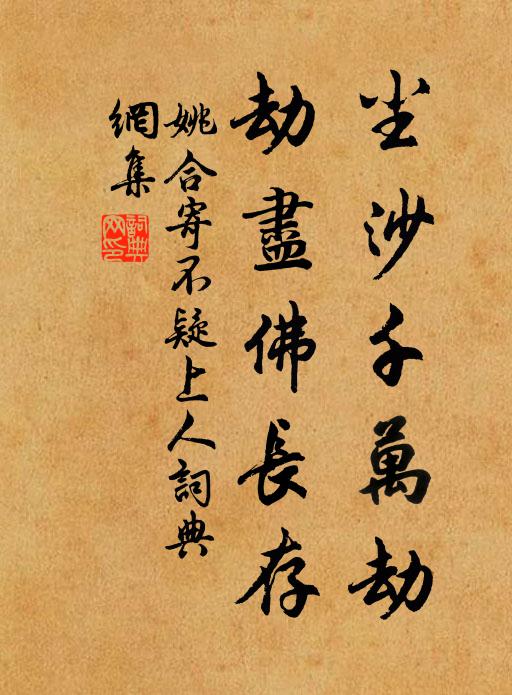 尘沙千萬劫
劫盡佛長存
姚合寄不疑上人詞典
網集
詞典網印